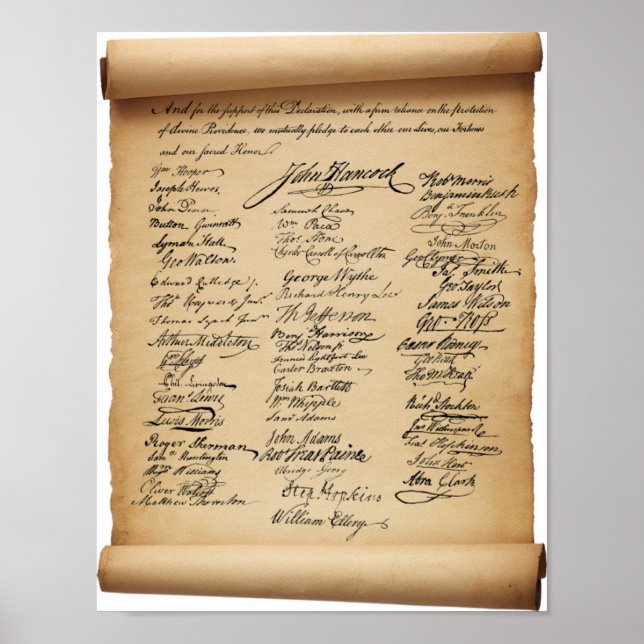 And for the support of this Declaration, with a firm reliance on the Protection
of divine Providence, we mutually pledge to each other our Lives, our Fortunes
and our sacred Honor.
John Hancock
Wm Hooper
Joseph Hewes,
John Penn
Button Gwinnett
Lyman Hall
Geo Walton.
Edward Rutledge /.
Thos Heyward Junr.
Thomas Lynch Junr.
Arthur Middleton
Wm Floyd
Phil. Livingston
Frans. Lewis
Lewis Morris
Roger Sherman
Saml Huntington
Wm Williams
Oliver Wolcott
Matthew Thornton
Samuel Chase
Wm Paca
Thos Stone
Charles Carroll of Carrollton
George Wythe
Richard Henry Lee
Th Jefferson
Benj Harrison
Thos Nelson jr.
Francis Lightfoot Lee
Carter Braxton
Josiah Bartlett
Wm Whipple
Saml Adams
John Adams
Robt Treat Paine
Elbridge Gerry
Step. Hopkins
William Ellery
Robt Morris
Benjamin Rush
Benj. Franklin
John Morton
Geo Clymer
Jas. Smith
Geo. Taylor
James Wilson
Geo. Ross
Caesar Rodney
Geo Read
Tho M:Kean
Richd. Stockton
Jno Witherspoon
Fras. Hopkinson
John Hart
Abra Clark